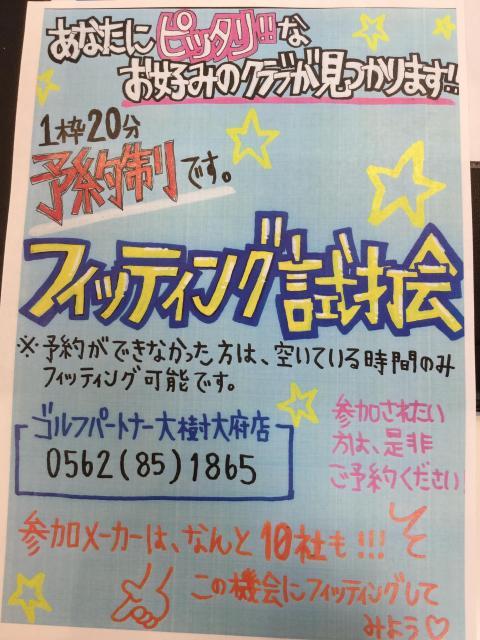 あなたにピッタリ!!な
お好みのクラブが見つかります!!
1枠20分
予約制です。
フィッティング試打会
※予約ができなかった方は、空いている時間のみ
フィッティング可能です。
ゴルフパートナー大樹大府店
0562(85)1865
参加されたい
方は、是非
ご予約ください!
参加メーカーは、なんと10社も!!!
この機会にフィッティングして
みよう♡